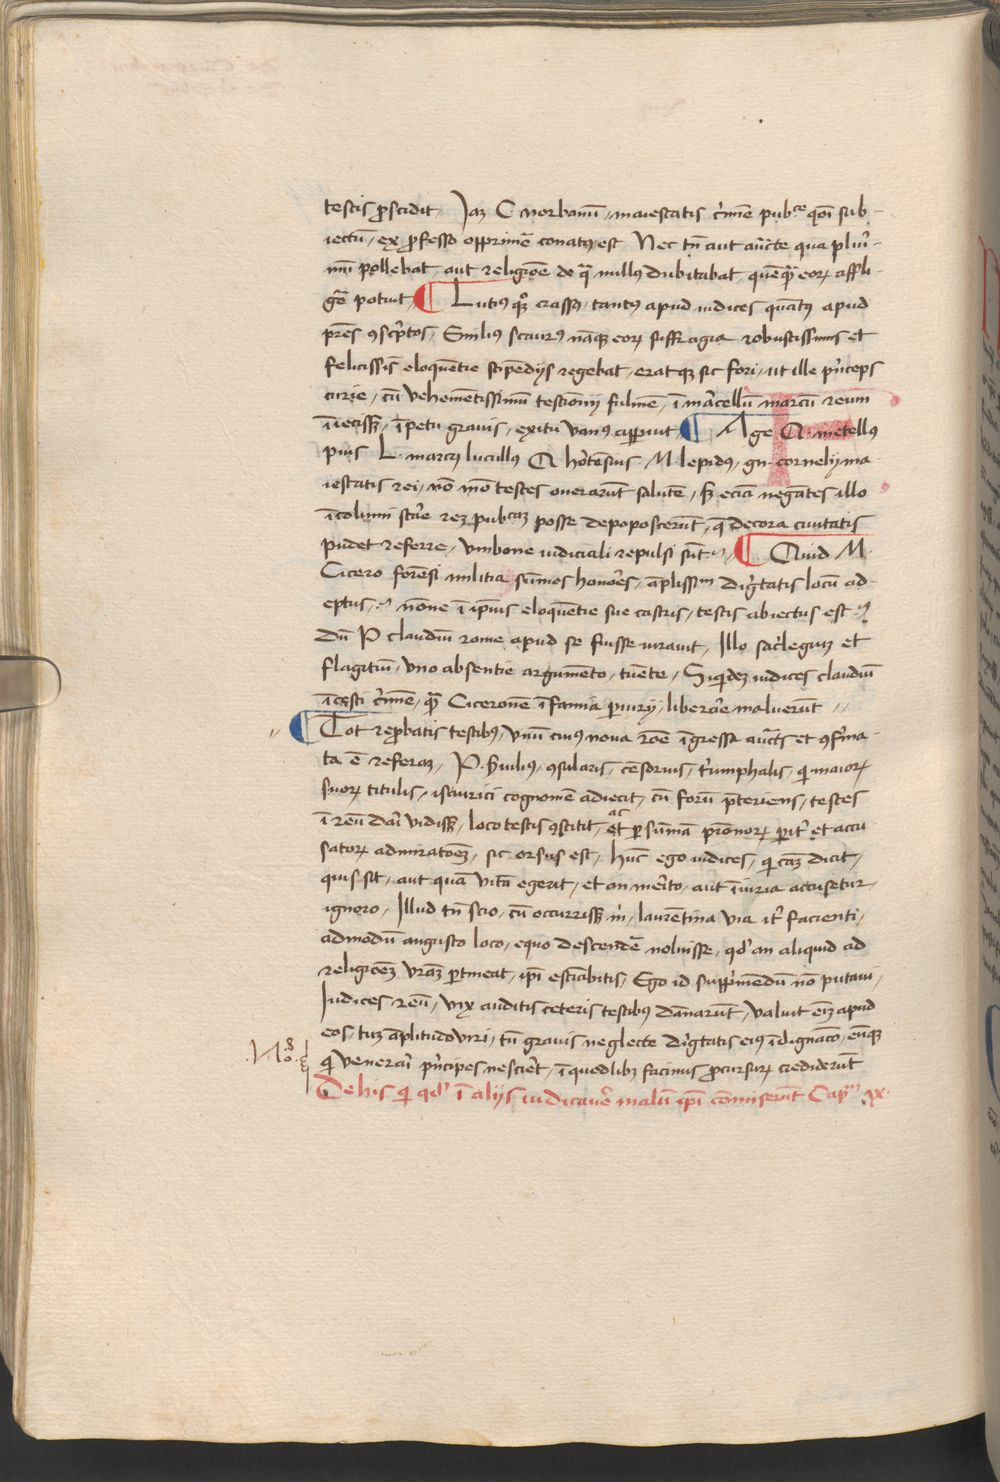 testis ꝓscidit. Jaꝫ C norbanū, maiestatis c̓imē pub.ce qōi sub-
iectū, ex ꝓfesso opprimē conatꝰ est Nec tn̄ aut auc̄te qua plur̄-
mū pollebat, aut religiōe de q̄ nullꝰ dubitabat, quēq̄ eoꝝ affli
gē potuit ¶ Lutiꝰ qꝫ crassꝰ, tantꝰ apud iudices quātꝰ apud
pr̄es ꝯsc̓ptos, Emiliꝰ scaurꝰ nāqꝫ eoꝝ suffragia robustissimis et
felicissīs eloquētie stipēdijs regebat, eratqꝫ sic fori, ut ille p̓nceps
curie, cū vehemētissimū testimonij fulmē, ī marcellū marcū reum
īiecissꝫ, īpetu grauis, exitu vanꝰ apparuit ¶ Age Q. metellus
pius L. marcꝰ lucullꝰ Q hortēsius M lepidꝰ, gn. cornelij ma
iestatis rei, nō mō testes onerarūt salutē, sꝫ eciā negātes illo
īcolumi stāe reꝫ pubcaꝫ posse depoposcerūt, q̄ decora ciuitatis
pudet referre, vmbone iudiciali repulsi sūt ¶ Quid M.
Cicero forēsi militia sūmos honores, aplissm̄ dignitatis locū ad-
eptus, nōne ī ipīus eloquētie sue castris, testis abiectus est
dū P claudiū rome apud se fuisse iurauit, Illo sac̓legiuꝫ et
flagitiū, vno absentie argumēto, tuēte, Siqdeꝫ iudices claudiū
īcesti c̓imē, q̄ Ciceronē īfamia ꝑiurij, liberāe maluerūt
¶ Tot reꝓbatis testibꝰ, vnū cuiꝰ noua rōe īgressa auc̄ts et ꝯfirma-
ta ē referaꝫ, P. Suiliꝰ, ꝯsularis, cēsorius, t̓umphalis, qi maioꝝ
suoꝝ titulis, isaurici cognomē adiecit, cū forū p̄teriens, testes
ī reū dari vidissꝫ, loco testis ꝯstitit, ac et ꝑ sūmā pr̄onoꝝ parit̓ et accu
satoꝝ admiratoēꝫ, sic orsus est, hūc ego iudices, qi cāꝫ dicit,
quis sit, aut quā vitā egerit, et an merito, aut īiuria accusetur,
ignoro, Illud tn̄ scio, cū occurrissꝫ m̄, laurētina via it̓ facienti,
admodū angusto loco, equo descendē noluisse, qd̓ an aliquid ad
religiōeꝫ vrāꝫ ꝑtineat, ipī estīabitis, Ego id supp̓mēdū nō putaui,
Iudices reū, vix auditis ceteris testibus dānarūt, valuit eīꝫ apud
eos, tuꝫ aplitudo viri, tū grauis neglecte dignitatis eiꝰ īdignaco, eūqꝫ
qi venerari p̓ncipes nesciret, ī quodlibꝫ facinus ꝓcursuꝝ crediderūt
De his qi qd̓ ī alijs iudicauer̄ malū ipī cōmiserūt Capm xx.